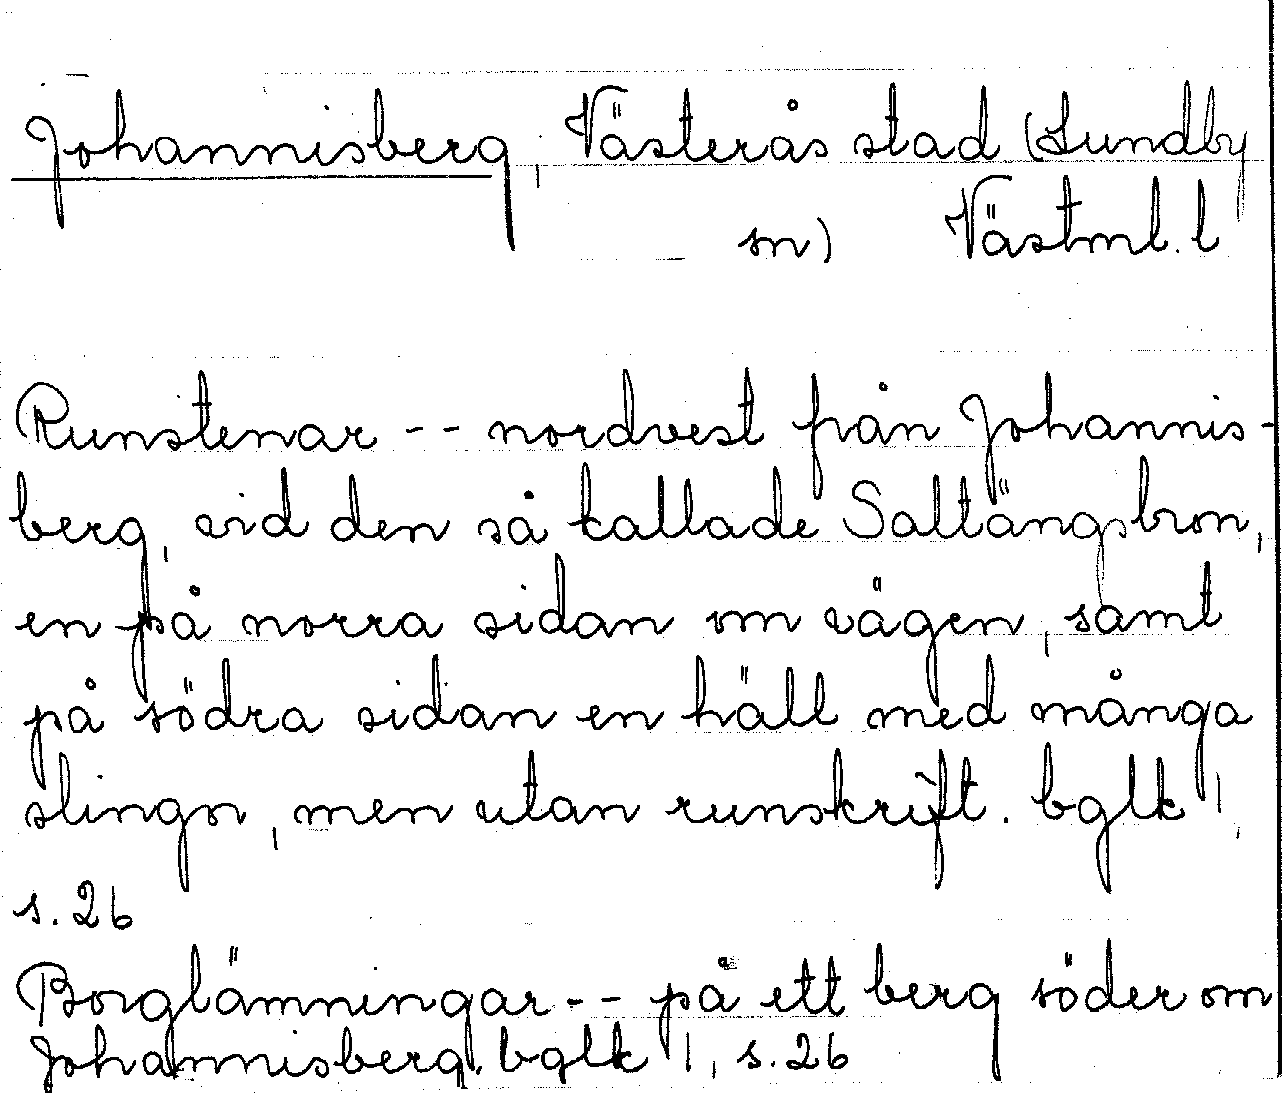 Johannisberg, Västerås stad (Lundby
sn) Västml. l
Runstenar -- nordvest från Johannis-
berg, vid den så kallade Saltängsbron,
en på norra sidan om vägen, samt
på södra sidan en häll med många
slingor, men utan runskrift. bglk 1,
s. 26
Borglämningar -- på ett berg söder om
Johannisberg. bglk 1, s. 26